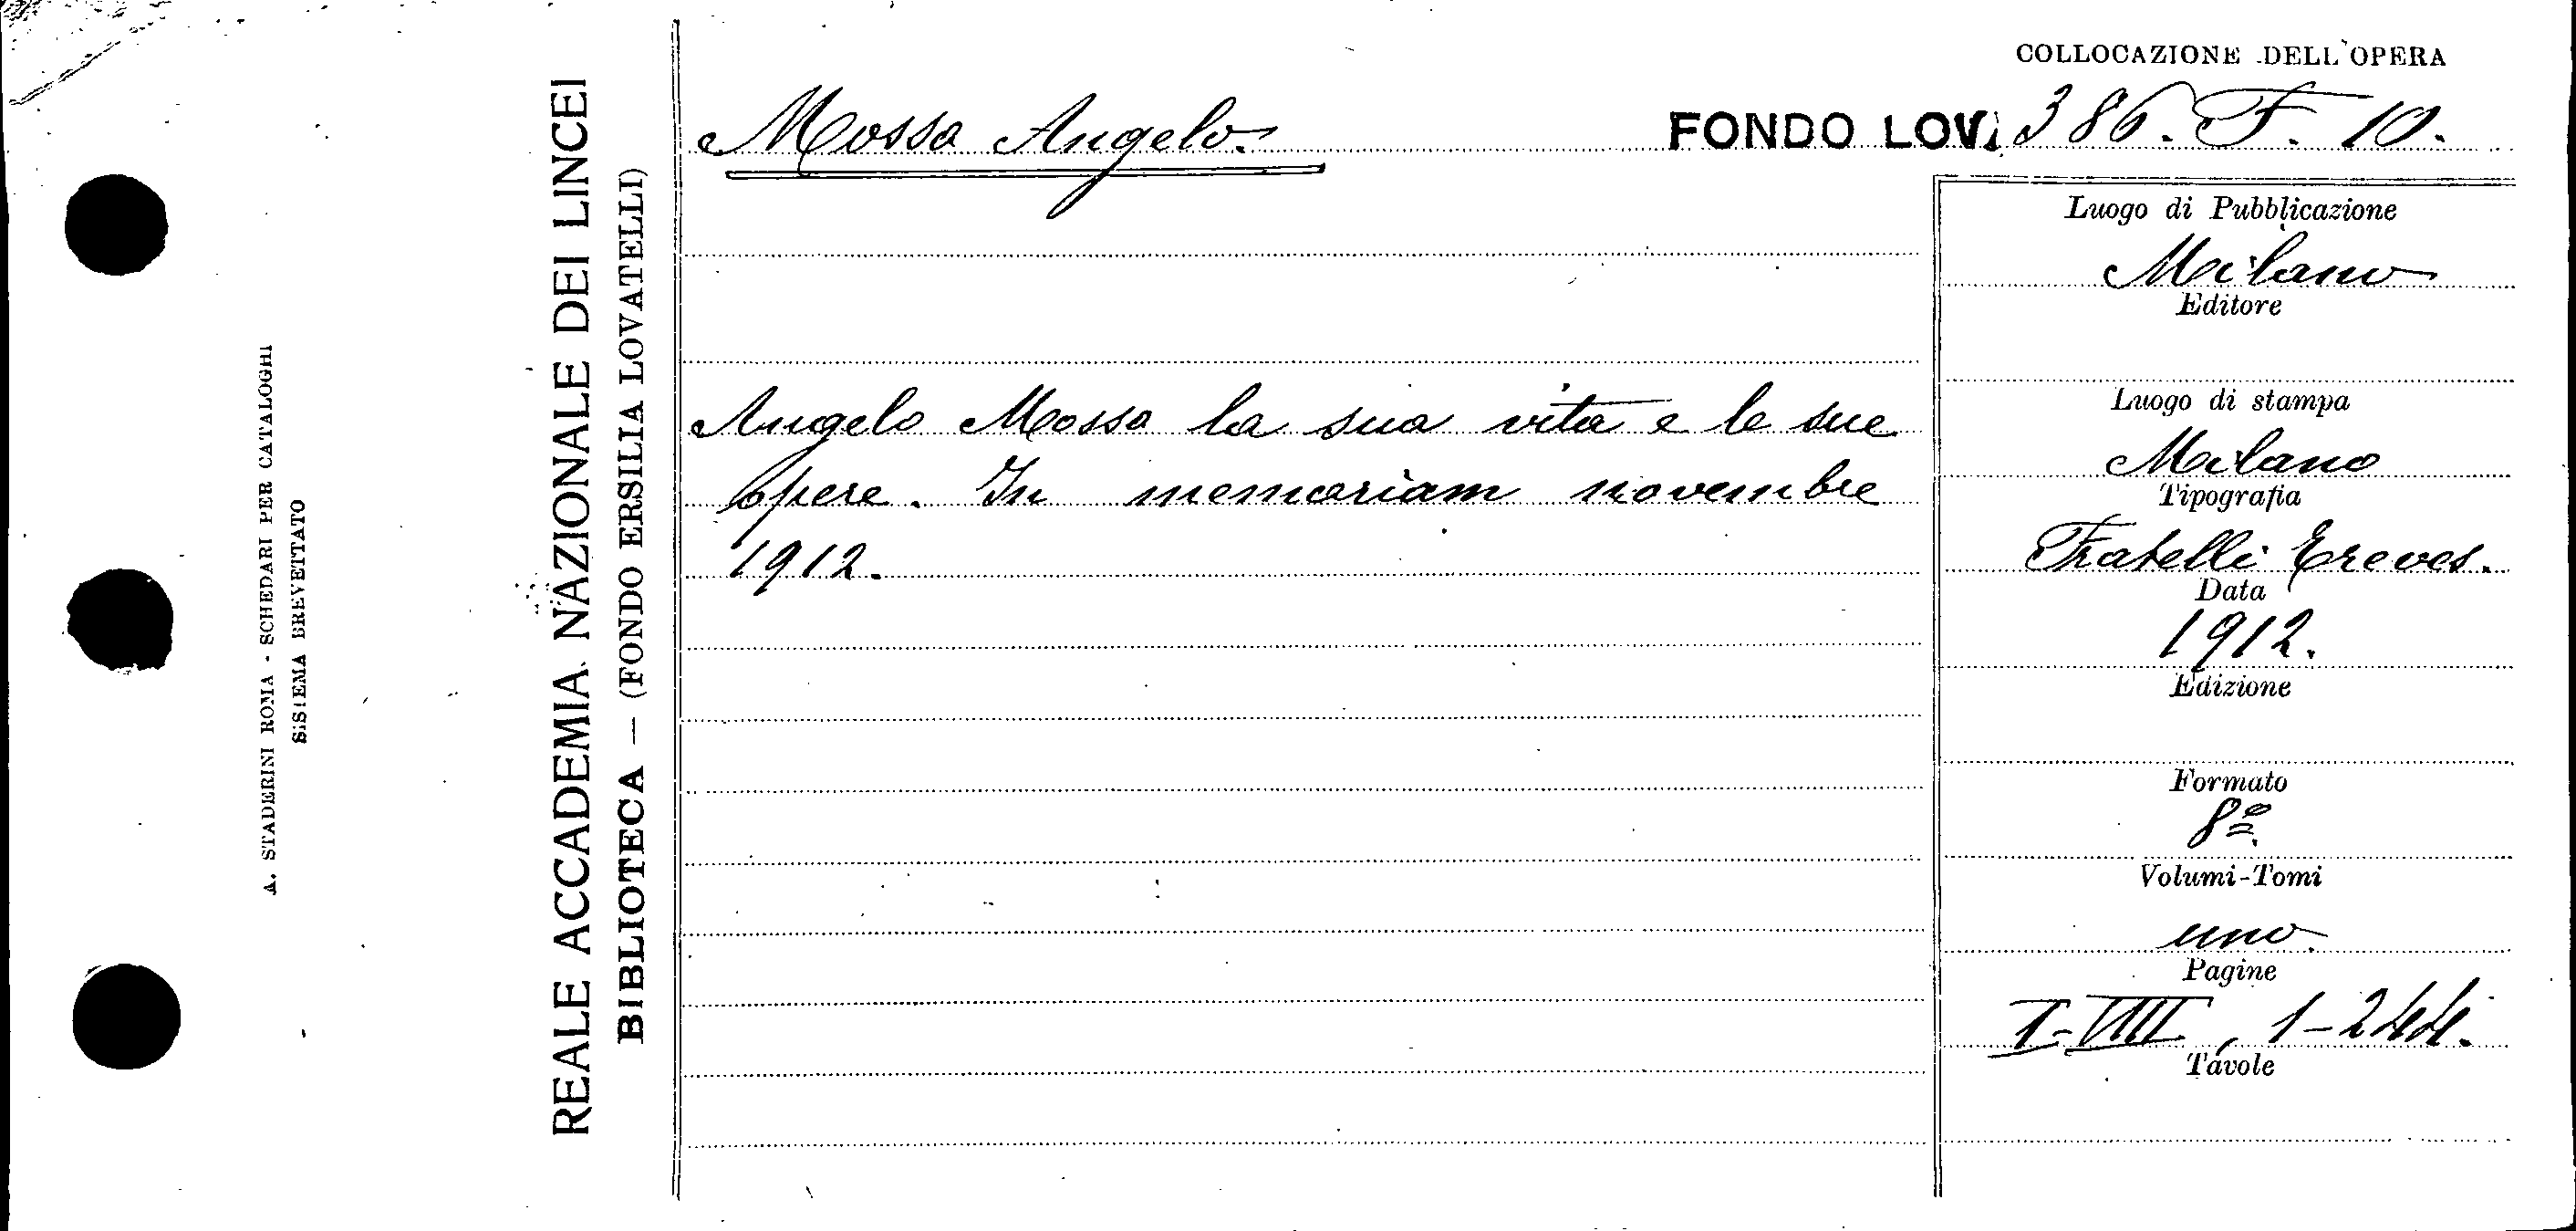 A. STADERINI ROMA - SCHEDARI PER CATALOGHI
SISTEMA BREVETTATO
REALE ACCADEMIA NAZIONALE DEI LINCEI
BIBLIOTECA — (FONDO ERSILIA LOVATELLI)
COLLOCAZIONE DELL'OPERA
Mosso Angelo.
FONDO LOV. 386. F. 10.
Angelo Mosso la sua vita e le sue
opere. In memoriam novembre
1912.
Luogo di Pubblicazione
Milano
Editore
Luogo di stampa
Milano
Tipografia
Fratelli Treves.
Data
1912.
Edizione
Formato
8º
Volumi-Tomi
uno.
Pagine
I-VIII, 1-244.
Tavole